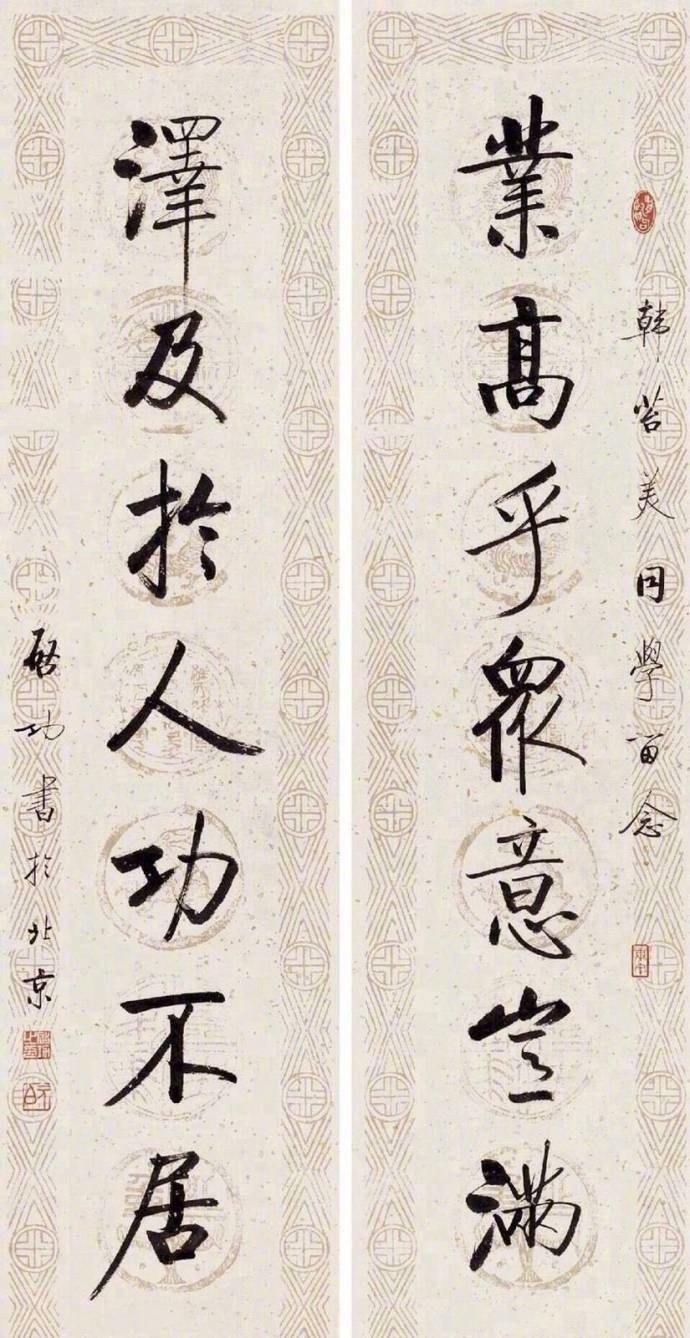 韓苕美同學留念
業高乎眾意豈滿
澤及於人功不居
啟功書於北京